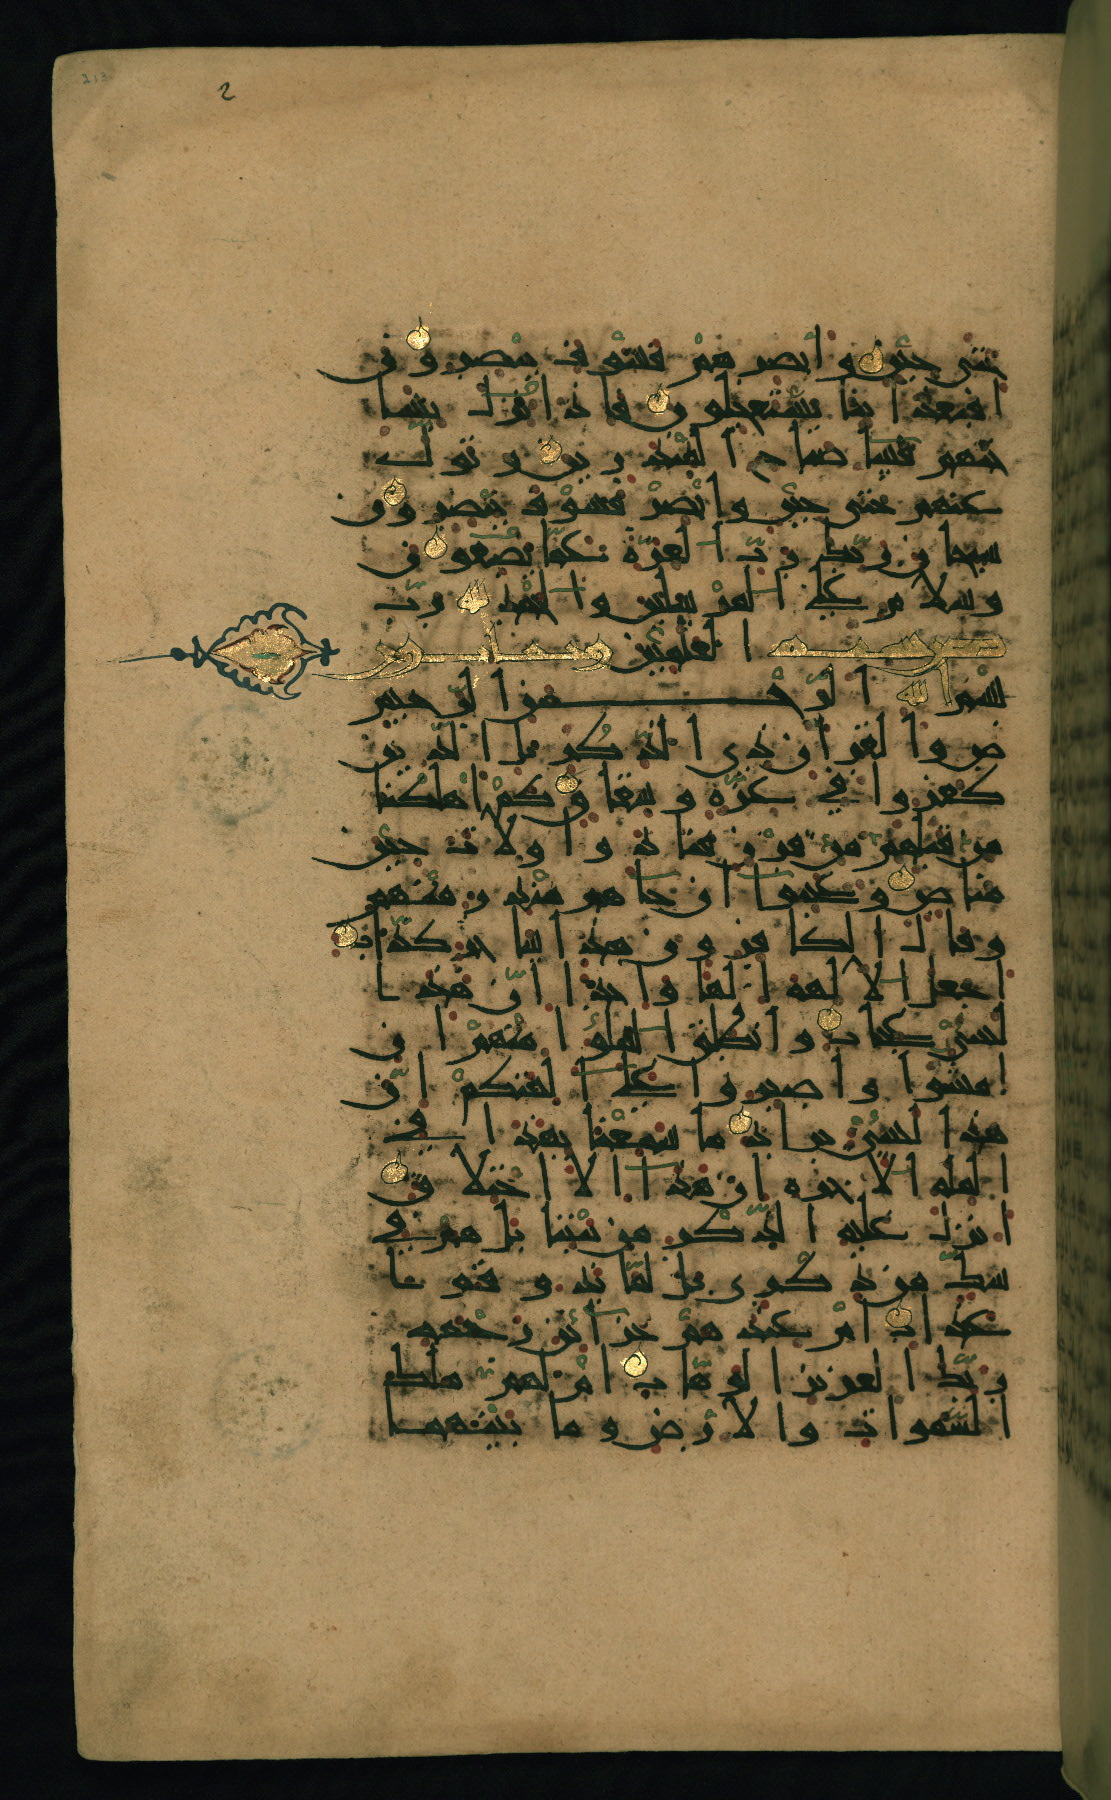 حتى حين وابصرهم فسوف يبصرون
افبعذابنا يستعجلون فاذا نزل بسا
حتهم فسا صباح المنذرين وتول
عنهم حتى حين وابصر فسوف يبصرون
سبحان ربك رب العزة عما يصفون
وسلام على المرسلين والحمد لله رب
العلمين
بسم الله الرحمن الرحيم
ص والقران ذي الذكر بل الذين
كفروا في عزة وشقاق كم اهلكنا
من قبلهم من قرن فنادوا ولات حين
مناص وعجبوا ان جاهم منذر منهم
وقال الكافرون هذا ساحر كذاب
اجعل الالهة الها واحدا ان هذا
لشي عجاب وانطلق الملا منهم ان
امشوا واصبروا على الهتكم ان
هذا لشي يراد ما سمعنا بهذا في
الملة الاخرة ان هذا الا اختلاق
انزل عليه الذكر من بيننا بل هم في
شك من ذكري بل لما يذوقوا
عذاب ام عندهم خزائن رحمة
ربك العزيز الوهاب ام لهم ملك
السموات والارض وما بينهما